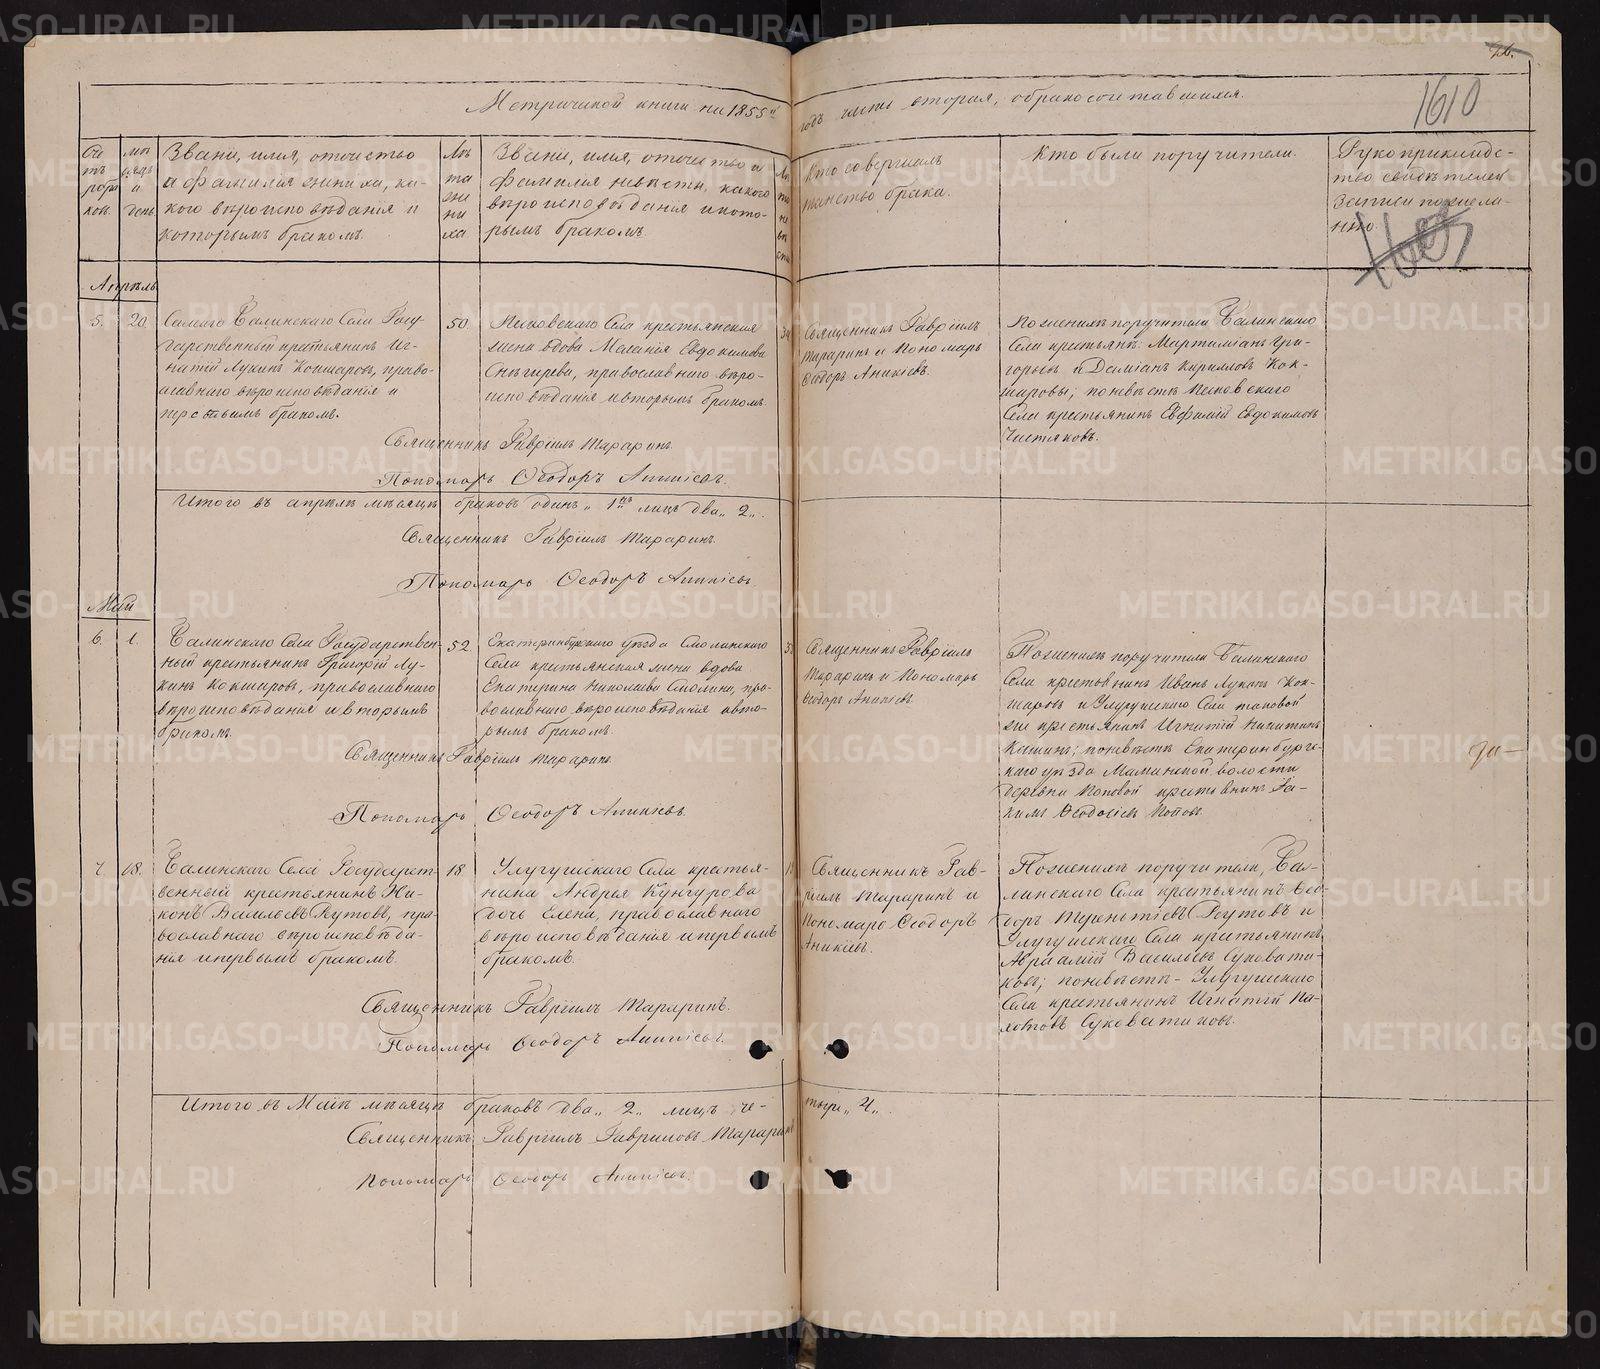 Метрической книги на 1855й годъ часть вторая, о бракосочетавшихся.
1610
Звание, имя, отчество
и фамилия жениха, ка-
кого вѣроисповѣдания и
которымъ бракомъ.
Лѣ
та
же
ни
ха
Звание, имя, отчество и
фамилия невѣсты, какого
вѣроисповѣдания и кото-
рымъ бракомъ.
Кто совершалъ
таинство брака.
Кто были поручители.
Рукоприкладс-
тво свидѣтелей
записи по жела-
нию.
Апрѣль
5.
20
Сего Галинскаго Села Госу-
дарственный крестьянинъ Иг-
натій Лукинъ Кокшаровъ, право-
славнаго вѣроисповѣданія и
третьимъ бракомъ.
50
Села крестьянская
жена вдова Меланія Евдокимова
Снѣгирева, православнаго вѣро-
исповѣданія и вторымъ бракомъ
Священникъ Гавріилъ
Тараринъ и Пономарь
Ѳеодоръ Аникіевъ.
По женихѣ поручители Галинскаго
Села крестьяне: Мартиміанъ Гри-
горьевъ и Даміанъ Кириловъ Кок-
шаровы; по невѣстѣ
Села крестьянинъ Евфимій Евдокимовъ
Чистяковъ.
Священникъ Гавріилъ Тараринъ
Пономарь Ѳеодоръ Аникіевъ.
Итого въ апрѣлѣ мѣсяцѣ браковъ одинъ „1нъ лицъ два „2„.
Священникъ Гавріилъ Тараринъ.
Пономарь Ѳеодоръ Аникіевъ.
Май
6.
1.
Галинскаго Села Государствен-
ный крестьянинъ Григорій Лу-
кинъ Кокшаровъ, православнаго
вѣроисповѣданія и вторымъ
бракомъ.
52
Екатеринбургскаго уѣзда Смолинскаго
Села крестьянская жена вдова
Екатерина Николаева Смолина, пра-
вославнаго вѣроисповѣданія и вто-
рымъ бракомъ.
Священникъ Гавріилъ
Тараринъ и Пономарь
Ѳеодоръ Аникіевъ
По женихѣ поручители Галинскаго
Села крестьянинъ Иванъ Лукинъ Кок-
шаровъ и Улугушскаго Села таковой
же крестьянинъ Игнатій Никитинъ
по невѣстѣ Екатеринбургс-
каго уѣзда Маминской волости
деревни Поповой крестьянинъ
Ѳеодосіевъ Поповъ.
Священникъ Гавріилъ Тараринъ
Пономарь Ѳеодоръ Аникіевъ.
7
18.
Галинскаго Села Государст-
венный крестьянинъ Ни-
конъ Васильевъ Реутовъ, пра-
вославнаго вѣроисповѣда-
нія и первымъ бракомъ.
18
Улугушскаго Села крестья-
нина Андрея Кунгурова
дочь Елена, православнаго
вѣроисповѣданія и первымъ
бракомъ.
Священникъ Гав-
ріилъ Тараринъ и
Пономарь Ѳеодоръ
Аникіевъ.
По женихѣ поручители, Га-
линскаго Села крестьянинъ Ѳео-
доръ Терентіевъ Реутовъ и
Улугушскаго Села крестьянинъ
Авраамій Васильевъ Суковати-
ковъ; по невѣстѣ - Улугушскаго
Села крестьянинъ Игнатій Па-
хотовъ Суковатиковъ.
Священникъ Гавріилъ Тараринъ.
Пономарь Ѳеодоръ Аникіевъ.
Итого въ Маѣ мѣсяцѣ браковъ два „2„ лицъ че-
тыре „4„.
Священникъ Гавріилъ Гавриловъ Тараринъ
Пономарь Ѳеодоръ Аникіевъ.
METRIKI.GASO-URAL.RU